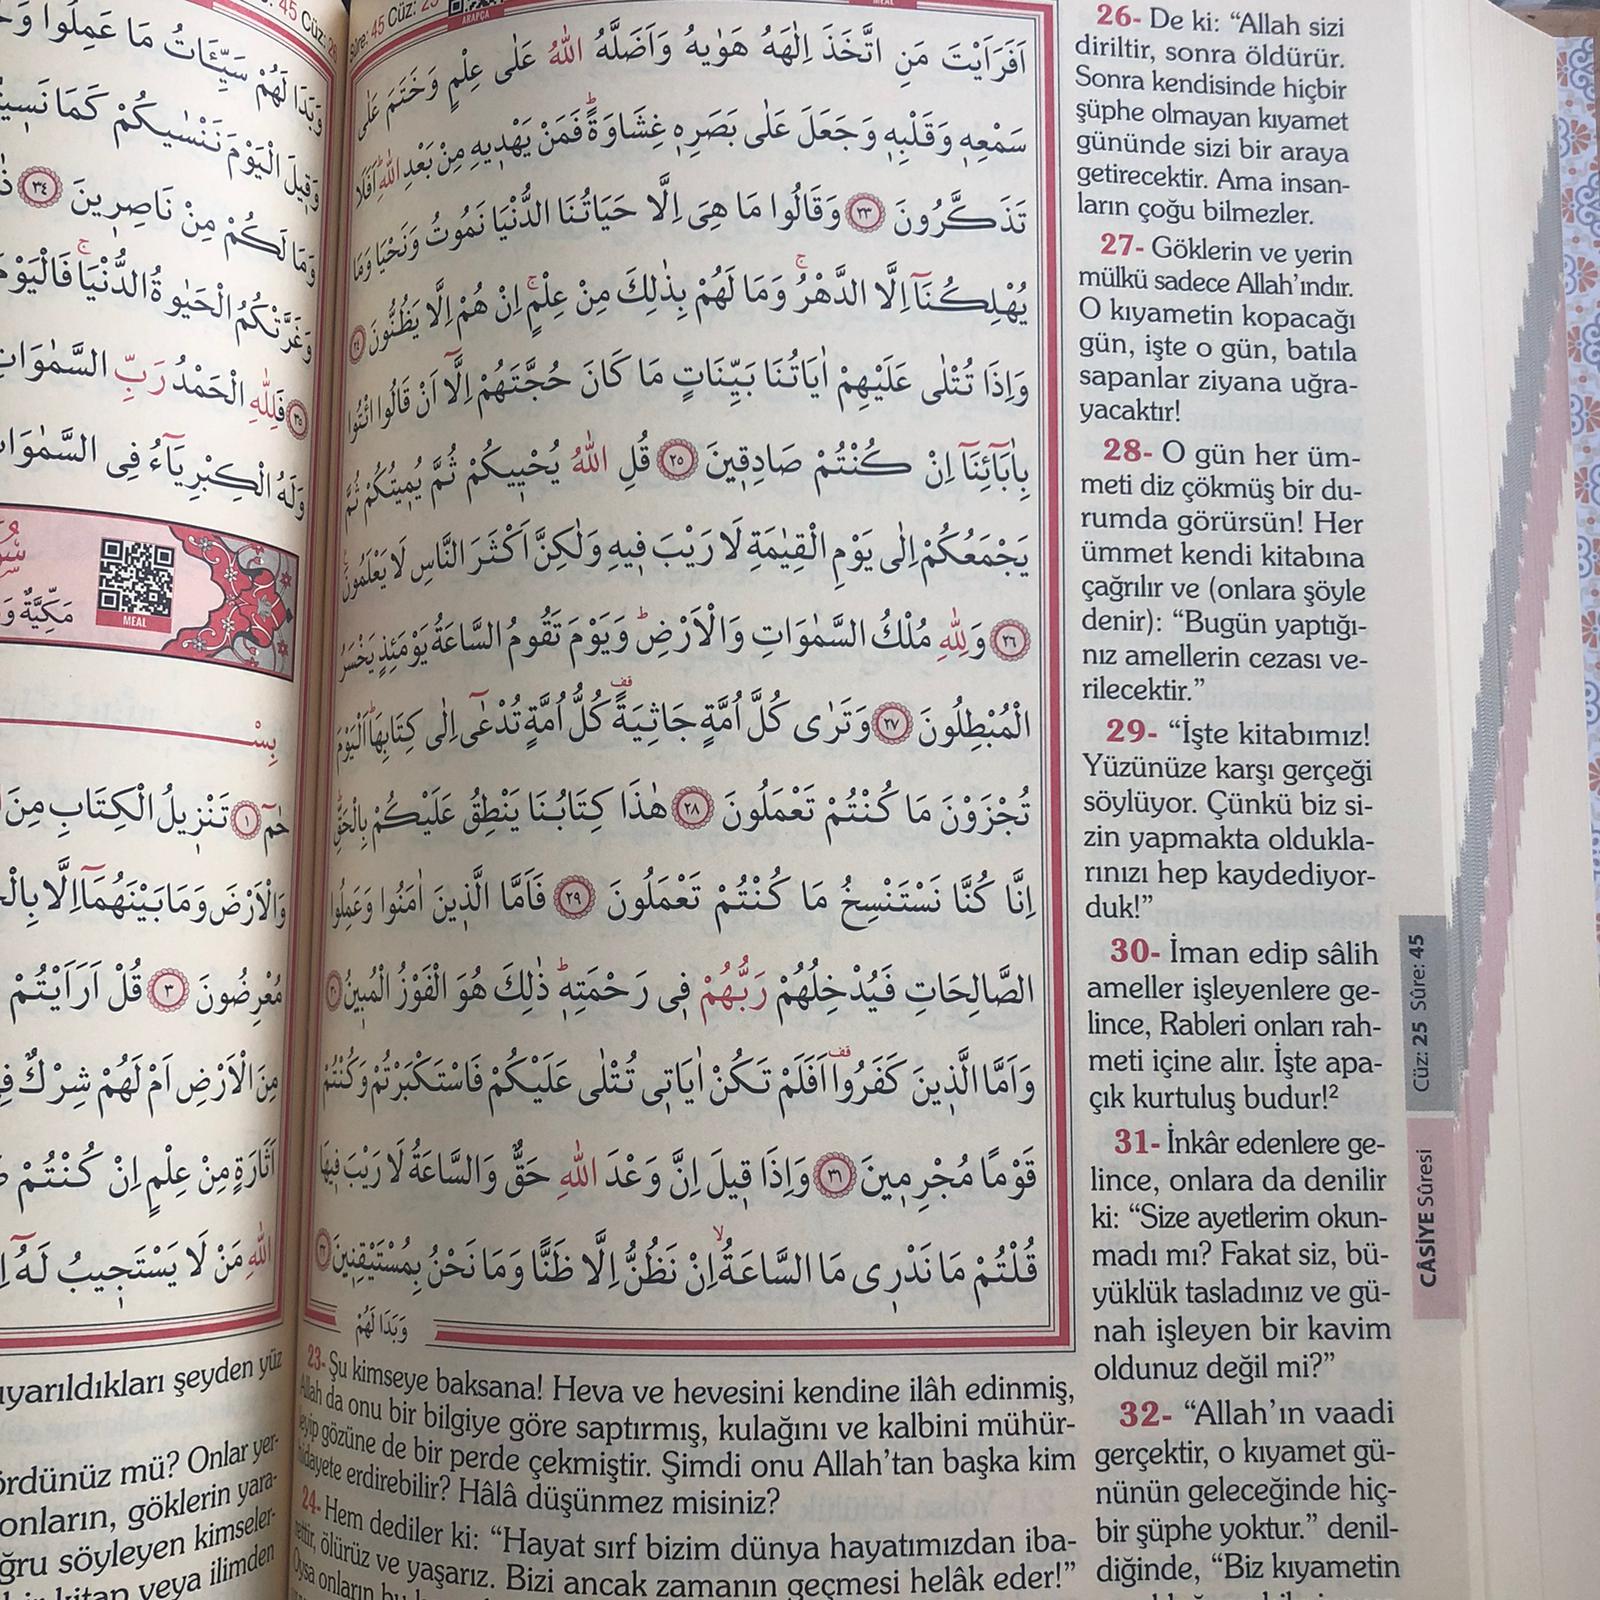 اَفَرَاَيْتَ مَنِ اتَّخَذَ اِلٰهَهُ هَوٰيهُ وَاَضَلَّهُ اللّٰهُ عَلٰى عِلْمٍ وَخَتَمَ عَلٰى
سَمْعِهٖ وَقَلْبِهٖ وَجَعَلَ عَلٰى بَصَرِهٖ غِشَاوَةًؕ فَمَنْ يَهْدٖيهِ مِنْ بَعْدِ اللّٰهِؕ اَفَلَا
تَذَكَّرُونَ ﴿٢٣﴾ وَقَالُوا مَا هِىَ اِلَّا حَيَاتُنَا الدُّنْيَا نَمُوتُ وَنَحْيَا وَمَا
يُهْلِكُنَٓا اِلَّا الدَّهْرُۚ وَمَا لَهُمْ بِذٰلِكَ مِنْ عِلْمٍۚ اِنْ هُمْ اِلَّا يَظُنُّونَ ﴿٢٤﴾
وَاِذَا تُتْلٰى عَلَيْهِمْ اٰيَاتُنَا بَيِّنَاتٍ مَا كَانَ حُجَّتَهُمْ اِلَّٓا اَنْ قَالُوا ائْتُوا
بِاٰبَٓائِنَٓا اِنْ كُنْتُمْ صَادِقٖينَ ﴿٢٥﴾ قُلِ اللّٰهُ يُحْيٖيكُمْ ثُمَّ يُمٖيتُكُمْ ثُمَّ
يَجْمَعُكُمْ اِلٰى يَوْمِ الْقِيٰمَةِ لَا رَيْبَ فٖيهِ وَلٰكِنَّ اَكْثَرَ النَّاسِ لَا يَعْلَمُونَ
﴿٢٦﴾ وَلِلّٰهِ مُلْكُ السَّمٰوَاتِ وَالْاَرْضِؕ وَيَوْمَ تَقُومُ السَّاعَةُ يَوْمَئِذٍ يَخْسَرُ
الْمُبْطِلُونَ ﴿٢٧﴾ وَتَرٰى كُلَّ اُمَّةٍ جَاثِيَةً كُلُّ اُمَّةٍ تُدْعٰٓى اِلٰى كِتَابِهَاؕ اَلْيَوْمَ
تُجْزَوْنَ مَا كُنْتُمْ تَعْمَلُونَ ﴿٢٨﴾ هٰذَا كِتَابُنَا يَنْطِقُ عَلَيْكُمْ بِالْحَقِّؕ
اِنَّا كُنَّا نَسْتَنْسِخُ مَا كُنْتُمْ تَعْمَلُونَ ﴿٢٩﴾ فَاَمَّا الَّذٖينَ اٰمَنُوا وَعَمِلُوا
الصَّالِحَاتِ فَيُدْخِلُهُمْ رَبُّهُمْ فٖى رَحْمَتِهٖؕ ذٰلِكَ هُوَ الْفَوْزُ الْمُبٖينُ ﴿٣٠﴾
وَاَمَّا الَّذٖينَ كَفَرُوا اَفَلَمْ تَكُنْ اٰيَاتٖى تُتْلٰى عَلَيْكُمْ فَاسْتَكْبَرْتُمْ وَكُنْتُمْ
قَوْمًا مُجْرِمٖينَ ﴿٣١﴾ وَاِذَا قٖيلَ اِنَّ وَعْدَ اللّٰهِ حَقٌّ وَالسَّاعَةُ لَا رَيْبَ فٖيهَا
قُلْتُمْ مَا نَدْرٖى مَا السَّاعَةُۙ اِنْ نَظُنُّ اِلَّا ظَنًّا وَمَا نَحْنُ بِمُسْتَيْقِنٖينَ ﴿٣٢﴾
وَبَدَا لَهُمْ
23- Şu kimseye baksana! Heva ve hevesini kendine ilâh edinmiş,
Allah da onu bir bilgiye göre saptırmış, kulağını ve kalbini mühür-
leyip gözüne de bir perde çekmiştir. Şimdi onu Allah'tan başka kim
hidayete erdirebilir? Hâlâ düşünmez misiniz?
24- Hem dediler ki: "Hayat sırf bizim dünya hayatımızdan iba-
rettir, ölürüz ve yaşarız. Bizi ancak zamanın geçmesi helâk eder!"
Oysa onların bu
26- De ki: "Allah sizi
diriltir, sonra öldürür.
Sonra kendisinde hiçbir
şüphe olmayan kıyamet
gününde sizi bir araya
getirecektir. Ama insan-
ların çoğu bilmezler.
27- Göklerin ve yerin
mülkü sadece Allah'ındır.
O kıyametin kopacağı
gün, işte o gün, batıla
sapanlar ziyana uğra-
yacaktır!
28- O gün her üm-
meti diz çökmüş bir du-
rumda görürsün! Her
ümmet kendi kitabına
çağrılır ve (onlara şöyle
denir): "Bugün yaptığı-
nız amellerin cezası ve-
rilecektir."
29- "İşte kitabımız!
Yüzünüze karşı gerçeği
söylüyor. Çünkü biz si-
zin yapmakta oldukla-
rınızı hep kaydediyor-
duk!"
30- İman edip sâlih
ameller işleyenlere ge-
lince, Rableri onları rah-
meti içine alır. İşte apa-
çık kurtuluş budur!²
31- İnkâr edenlere ge-
lince, onlara da denilir
ki: "Size ayetlerim okun-
madı mı? Fakat siz, bü-
yüklük tasladınız ve gü-
nah işleyen bir kavim
oldunuz değil mi?"
32- "Allah'ın vaadi
gerçektir, o kıyamet gü-
nünün geleceğinde hiç-
bir şüphe yoktur." denil-
diğinde, "Biz kıyametin
Cüz: 25 Sûre: 45
CÂSİYE Sûresi
وَبَدَا لَهُمْ سَيِّـَٔاتُ مَا عَمِلُوا
وَقٖيلَ الْيَوْمَ نَنْسٰيكُمْ كَمَا
وَمَا لَكُمْ مِنْ نَاصِرٖينَ ﴿٣٤﴾
وَغَرَّتْكُمُ الْحَيٰوةُ الدُّنْيَاۚ فَالْيَوْمَ
﴿٣٥﴾ فَلِلّٰهِ الْحَمْدُ رَبِّ
وَلَهُ الْكِبْرِيَٓاءُ فِى
MEAL
مَكِّيَّةٌ
حٰمٓ ﴿١﴾ تَنْزٖيلُ الْكِتَابِ مِنَ
وَالْاَرْضَ وَمَا بَيْنَهُمَٓا اِلَّا
مُعْرِضُونَ ﴿٣﴾ قُلْ اَرَاَيْتُمْ
مِنَ الْاَرْضِ اَمْ لَهُمْ شِرْكٌ
اَثَارَةٍ مِنْ عِلْمٍ اِنْ كُنْتُمْ
اللّٰهِ مَنْ لَا يَسْتَجٖيبُ لَهُٓ
uyarıldıkları şeyden yüz
gördünüz mü? Onlar yer-
onların, göklerin yara-
doğru söyleyen kimseler-
kitap veya ilimden